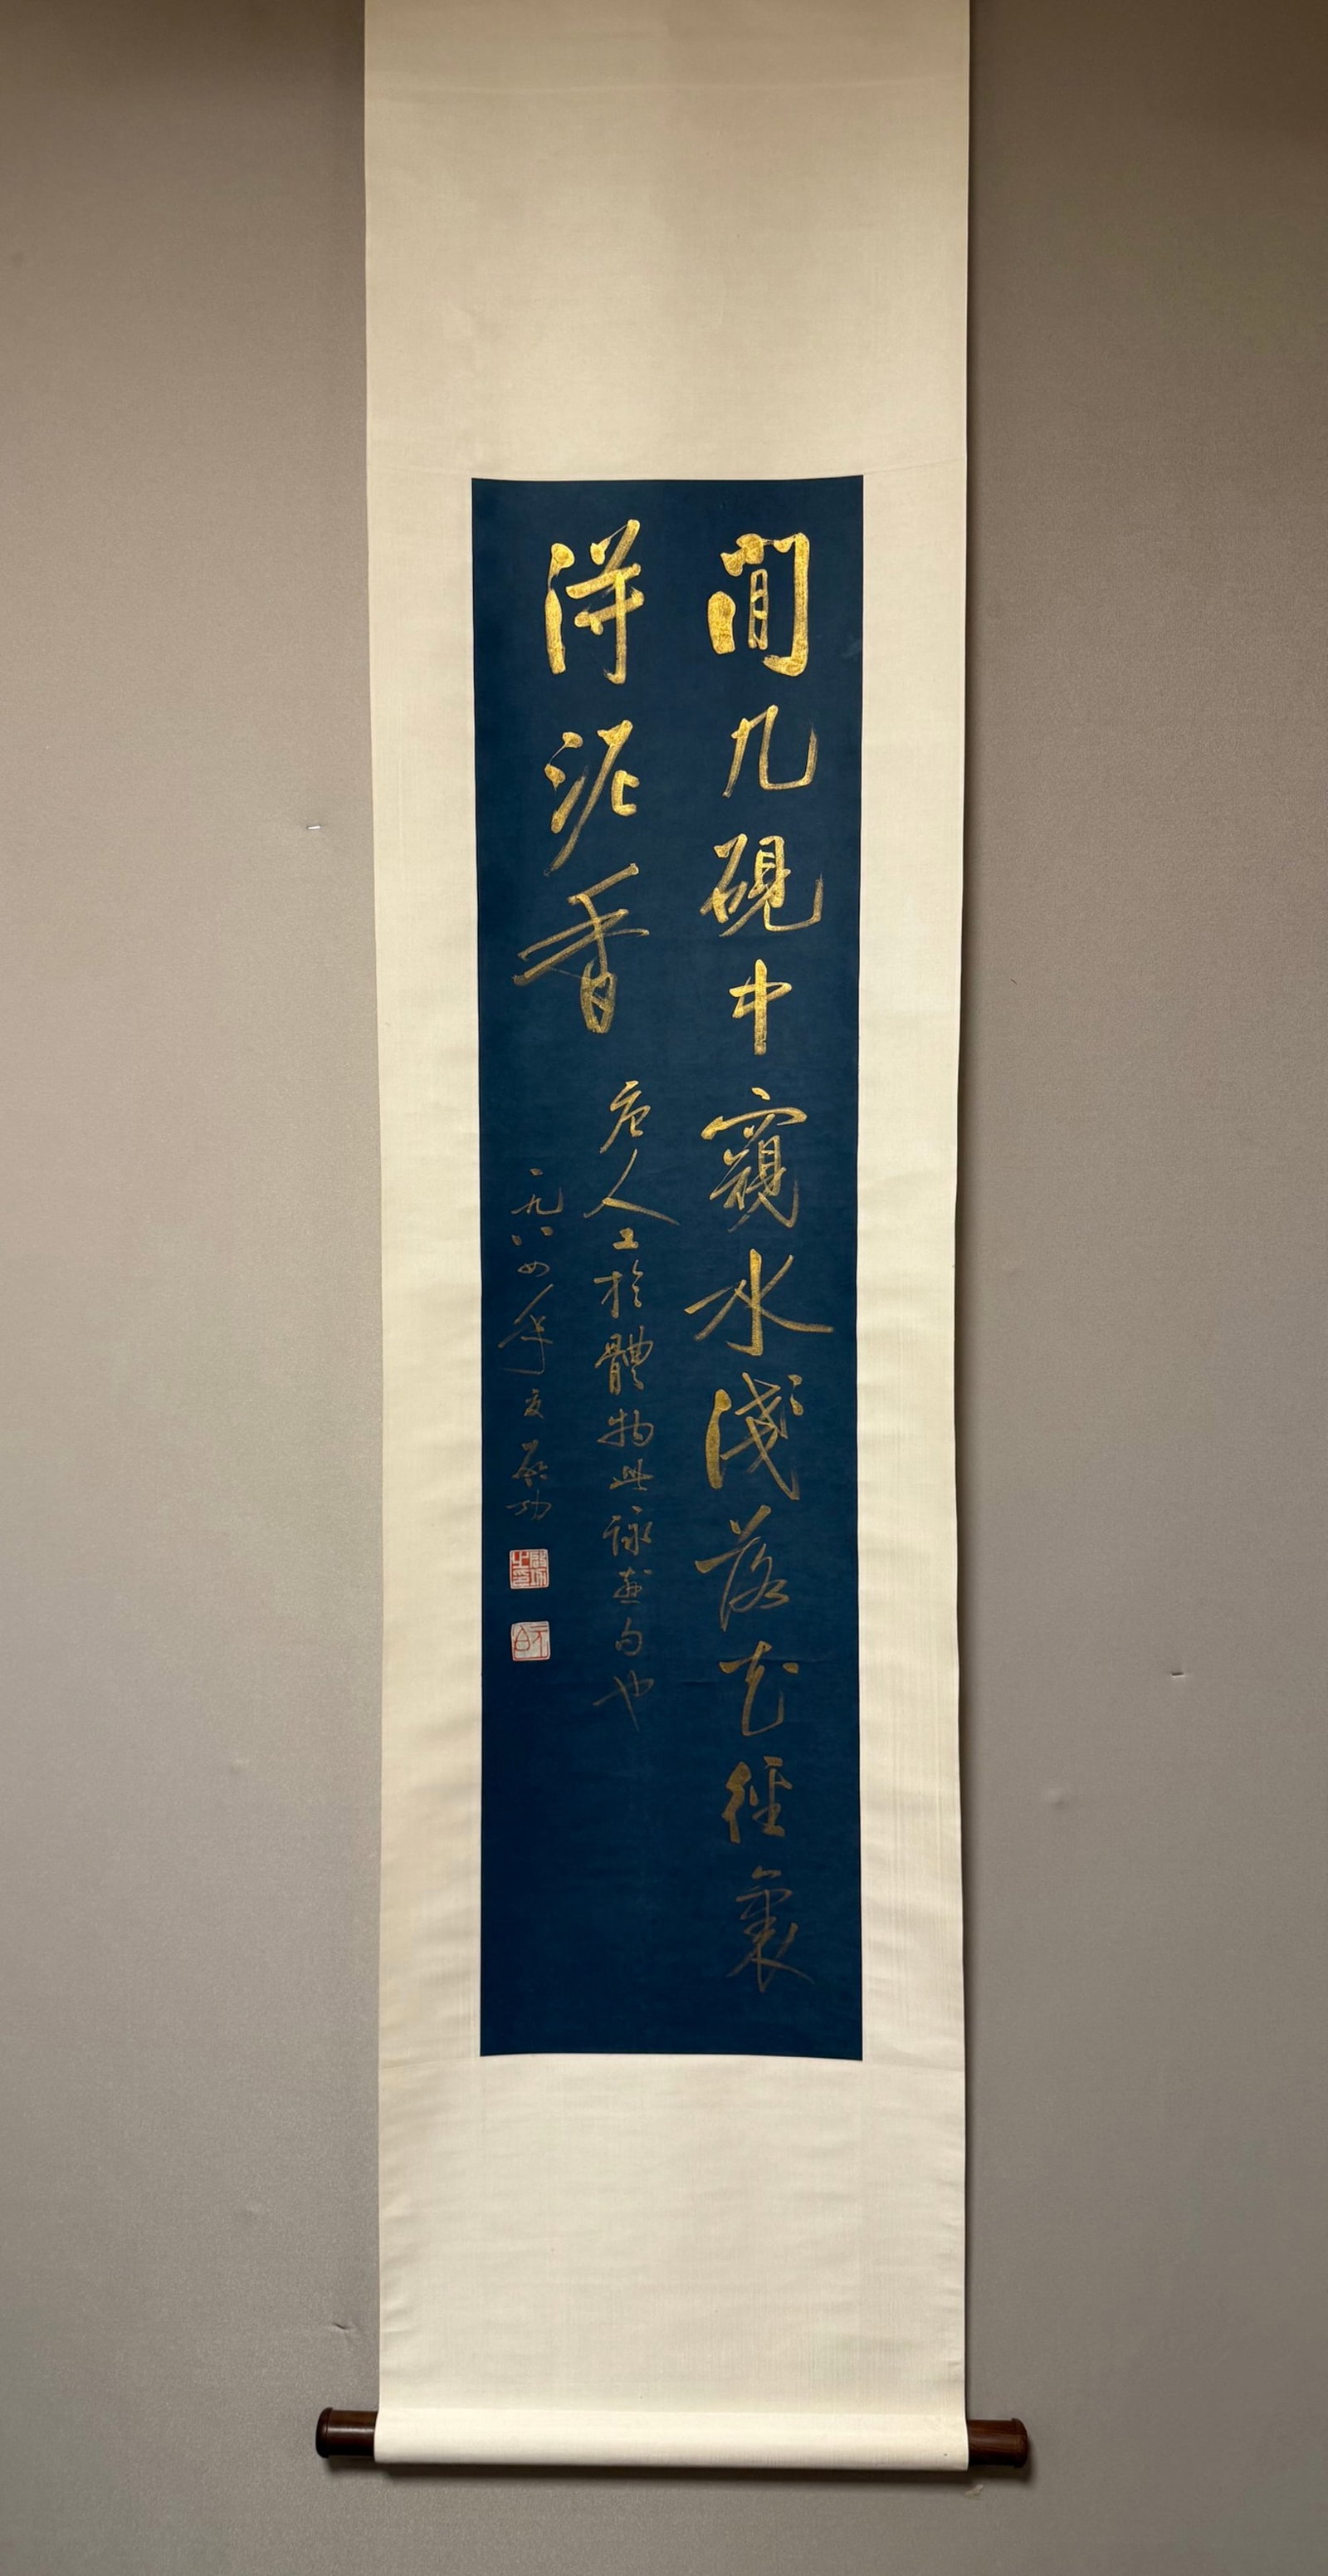 閒几硯中窺水淺落花徑裏
得泥香
唐人工於體物此詠燕句也
一九八四年夏啟功
啟功之印
元白